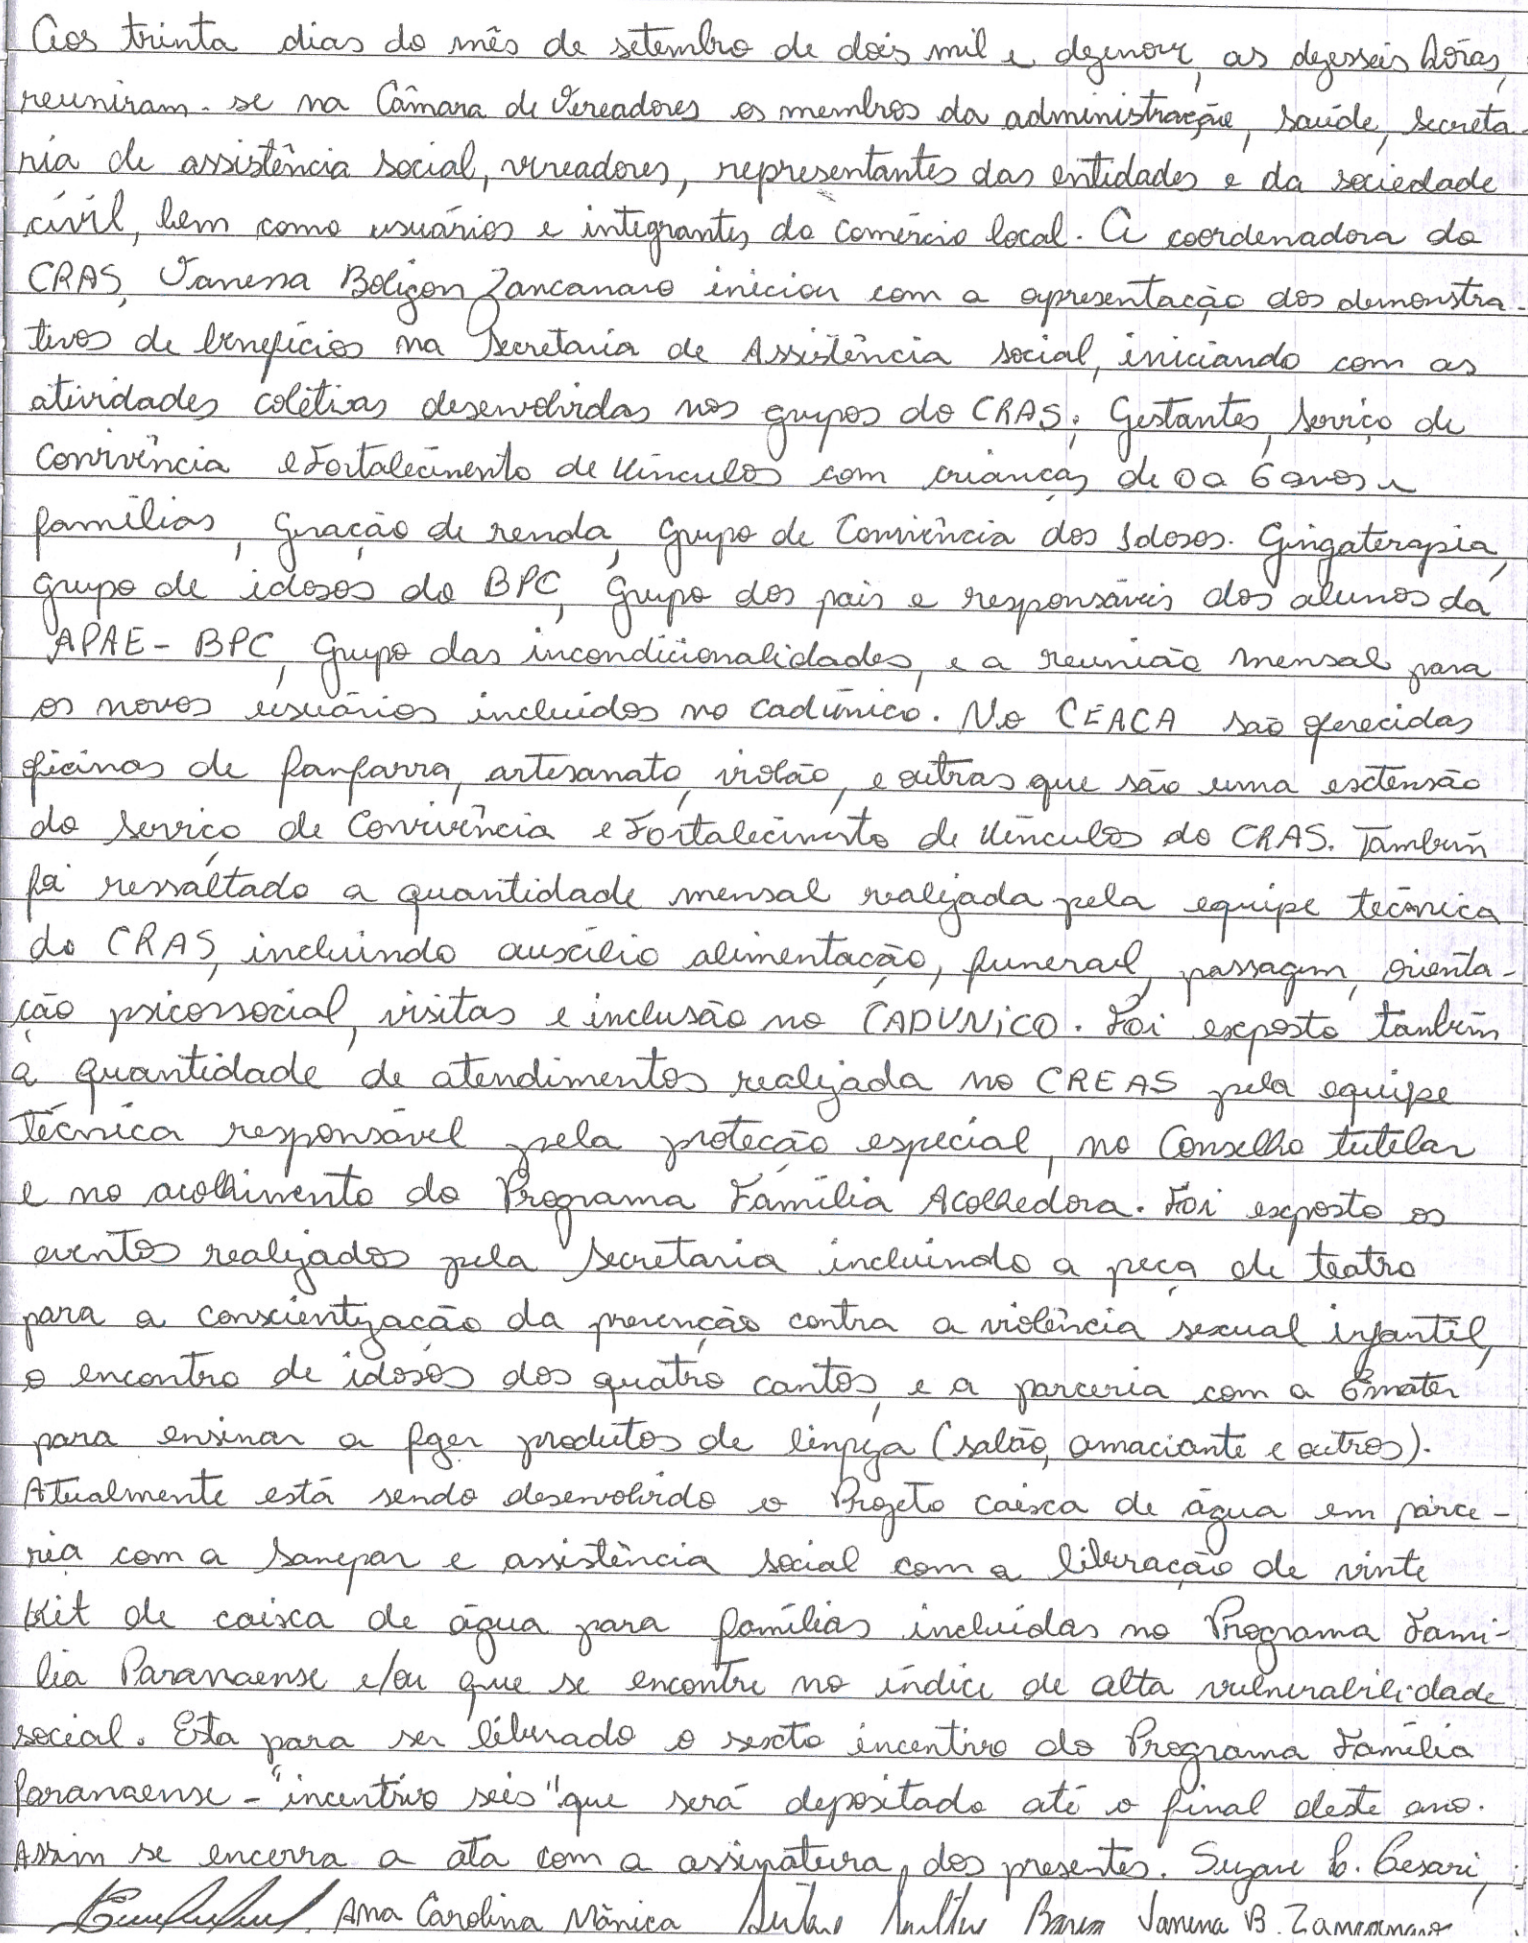 Aos trinta dias do mês de setembro de dois mil e dezenove, as dezesseis horas,
reuniram-se na Câmara de Vereadores os membros da administração, saúde, secreta-
ria de assistência social, vereadores, representantes das entidades e da sociedade
civil, bem como usuários e integrantes do comércio local. A coordenadora do
CRAS, Vanessa Boligon Zancanaro iniciou com a apresentação dos demonstra-
tivos de benefícios na Secretaria de Assistência social, iniciando com as
atividades coletivas desenvolvidas nos grupos do CRAS: Gestantes, Serviço de
Convivência e Fortalecimento de Vínculos com crianças de 0 a 6 anos e
famílias, Geração de renda, Grupo de Convivência dos Idosos. Gingaterapia,
grupo de idosos do BPC, Grupo dos pais e responsáveis dos alunos da
APAE - BPC, Grupo das incondicionalidades, e a reunião mensal para
os novos usuários incluídos no cadúnico. No CEACA são oferecidas
oficinas de fanfarra, artesanato, violão, e outras que são uma extensão
do Serviço de Convivência e Fortalecimento de Vínculos do CRAS. Também
foi ressaltado a quantidade mensal realizada pela equipe técnica
do CRAS, incluindo auxílio alimentação, funeral, passagem, orienta-
ção psicossocial, visitas e inclusão no CADUNICO. Foi exposto também
a quantidade de atendimentos realizada no CREAS pela equipe
técnica responsável pela proteção especial, no Conselho tutelar
e no acolhimento do Programa Família Acolhedora. Foi exposto os
eventos realizados pela Secretaria incluindo a peça de teatro
para a conscientização da prevenção contra a violência sexual infantil,
o encontro de idosos dos quatro cantos, e a parceria com a Emater
para ensinar a fazer produtos de limpeza (sabão, amaciante e outros).
Atualmente está sendo desenvolvido o Projeto caixa de água em parce-
ria com a Sanepar e assistência social com a liberação de vinte
Kit de caixa de água para famílias incluídas no Programa Famí-
lia Paranaense e/ou que se encontre no índice de alta vulnerabilidade
social. Esta para ser liberado o sexto incentivo do Programa Família
Paranaense - "incentivo seis" que será depositado até o final deste ano.
Assim se encerra a ata com a assinatura dos presentes. Suzane C. Cesari,
Ana Carolina Mânica Vanessa B. Zancanaro